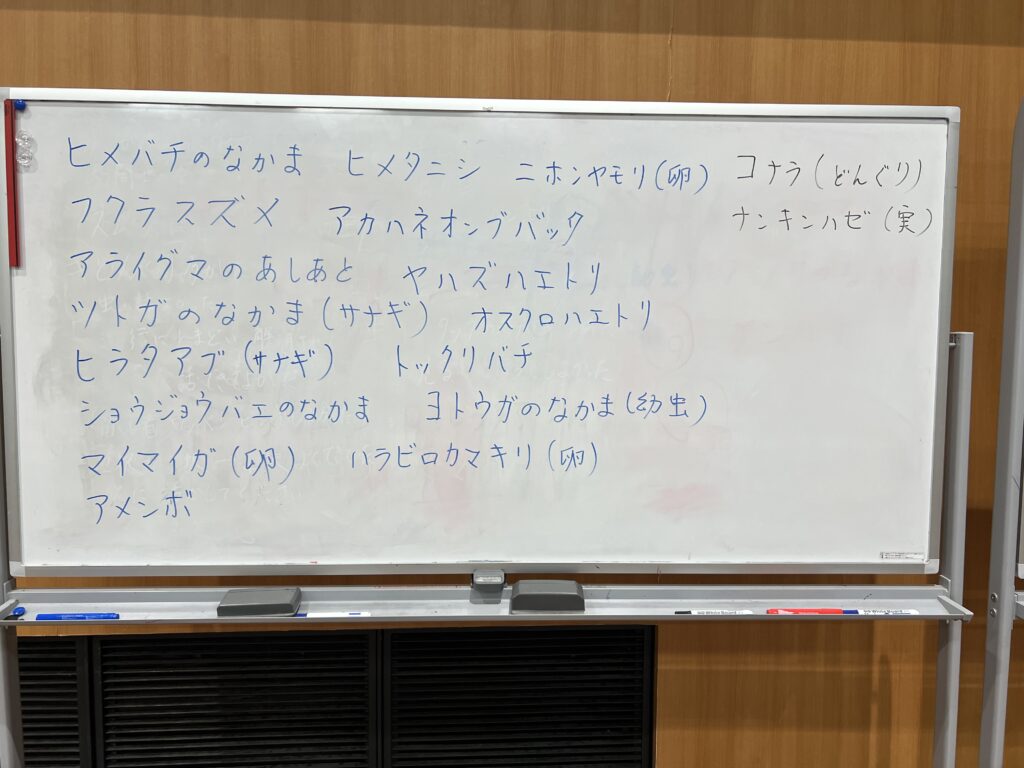 ヒメバチのなかま ヒメタニシ ニホンヤモリ(卵) コナラ(どんぐり)
フクラスズメ アカハネオンブバッタ ナンキンハゼ(実)
アライグマのあしあと ヤハズハエトリ
ツトガのなかま(サナギ) オスクロハエトリ
ヒラタアブ(サナギ) トックリバチ
ショウジョウバエのなかま ヨトウガのなかま(幼虫)
マイマイガ(卵) ハラビロカマキリ(卵)
アメンボ